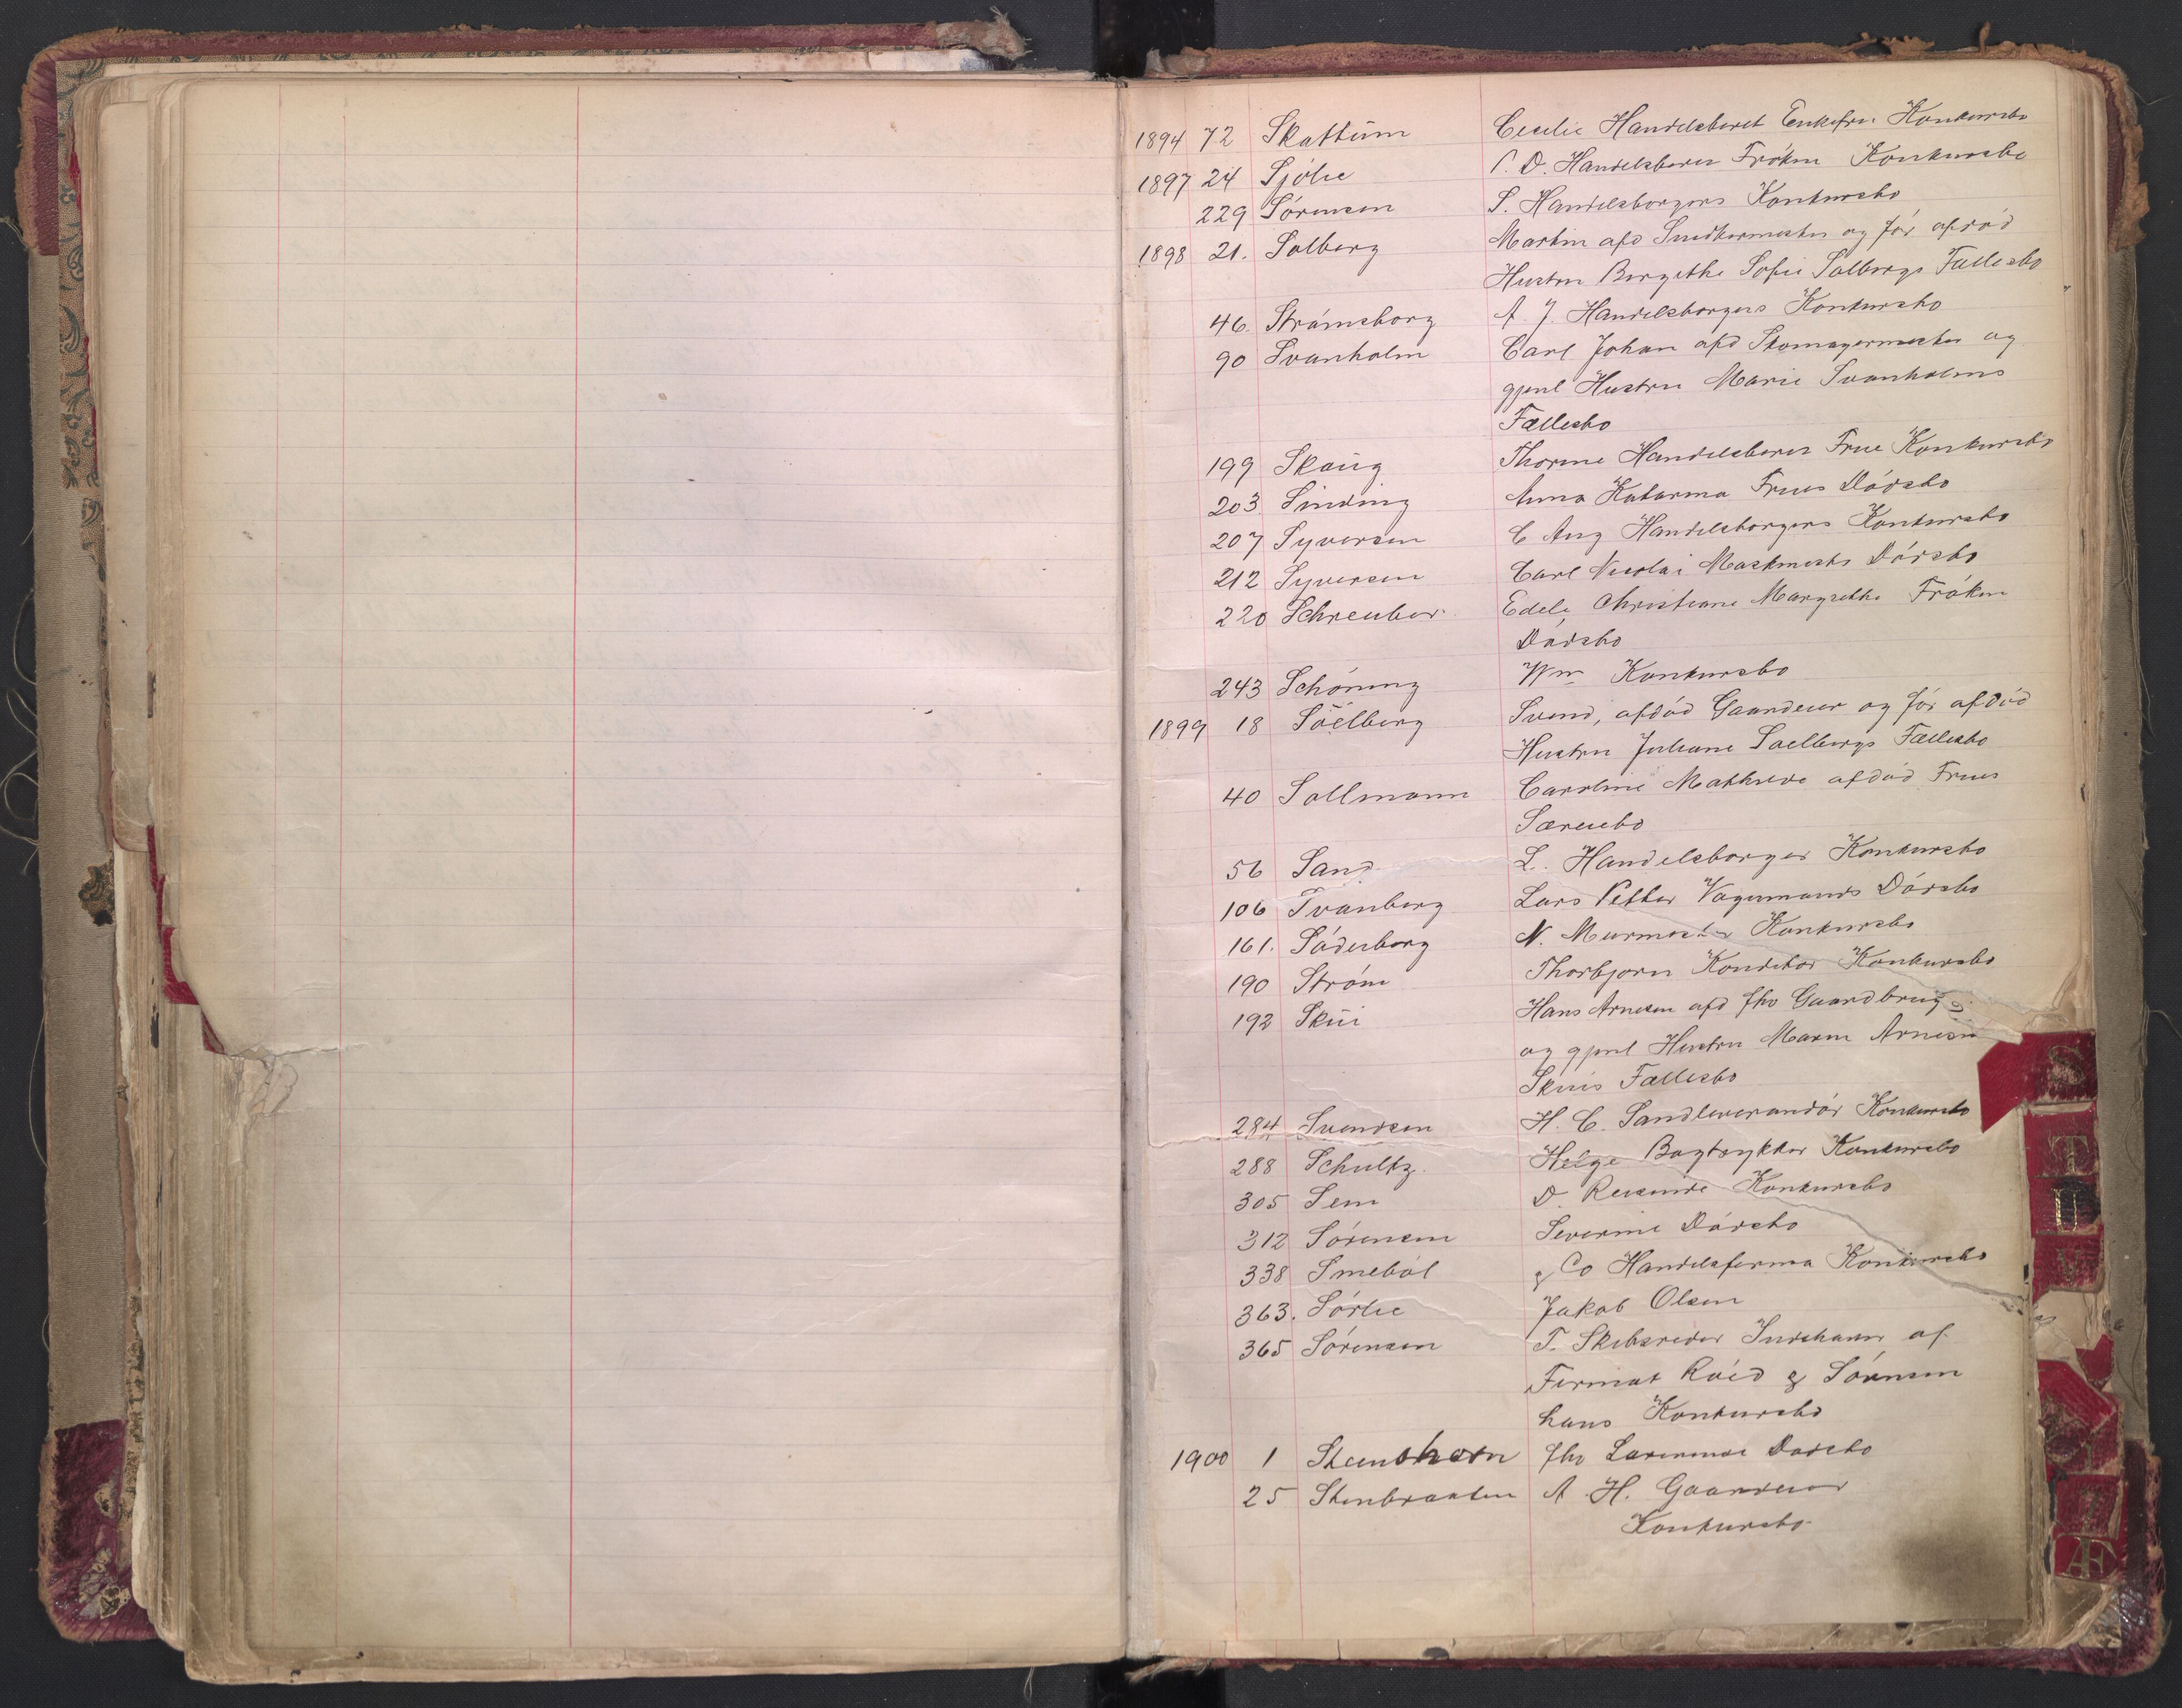 1894 72 Skattum Cecilie Handelsberet Enkefru Konkursbo
1897 24 Sjölie P. D. Handelsberer Fröken Konkursbo
229 Sörensen S. Handelsborgers Konkursbo
1898 21. Solberg Martin afd Snedkermester og för afdöd
Hustru Bergethe Sofie Solbergs Fællesbo
46. Strömsborg A. J. Handelsborgers Konkursbo
90 Svanholm Carl Johan afd Skomagermester og
gjenl Hustru Marie Svanholms
Fællesbo
199 Skaug Thorine Handelsberer Frue Konkursbo
203 Sinding Anna Katarina Frues Dödsbo
207 Syversen C Aug Handelsborgers Konkursbo
212 Syversen Carl Nicolai Maskmests Dödsbo
220 Schreuber Edele Christiane Margrethe Fröken
Dödsbo
243 Schöning Wm Konkursbo
1899 18 Söelberg Svend, afdöd Gaardeier og för afdöd
Hustru Juliane Soelbergs Fællesbo
40 Sollmann Caroline Mathilde afdöd Frues
Særeiebo
56 Sand L. Handelsborger Konkursbo
106 Svanberg Lars Petter Vognmands Dödsbo
161. Söderberg N. Murmester Konkursbo
190 Ström Thorbjorn Konditor Konkursbo
192 Skui Hans Arnesen afd fhv Gaardbrug
og gjenl Hustru Maren Arnesen
Skuis Fællesbo
284 Svendsen H. C. Sandleverandör Konkursbo
288 Schultz. Helge Bogtrykker Konkursbo
305 Sem D. Reisende Konkursbo
312 Sörensen Severine Dödsbo
338 Smeböl & Co Handelsfirma Konkursbo
363. Sörlie Jakob Olsen
365 Sörensen T. Skibsreder Indehaver af
Firmaet Röed & Sörensen
hans Konkursbo
1900 1 Steenshorn fhv Dödsbo
25 Stenbraaten A. H. Gaardeier
Konkursbo
S
T
U
V
Z
Æ